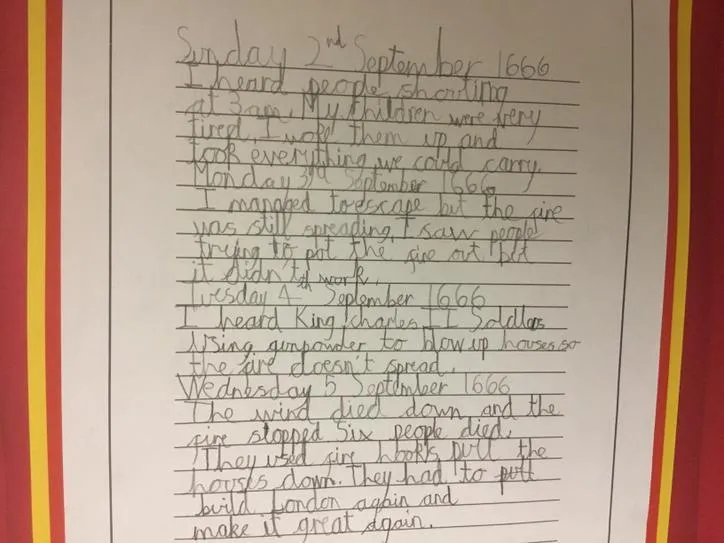 Sunday 2nd September 1666
I heard people shouting
at 3am. My children were very
tired. I woke them up and
took everything we could carry.
Monday 3rd September 1666
I managed to escape but the fire
was still spreading. I saw people
trying to put the fire out but
it didn't work.
Tuesday 4th September 1666
I heard King Charles II Soldlas
Using gunpowder to blow up houses so
the fire doesn't spread.
Wednesday 5 September 1666
The wind died down and the
fire stopped Six people died.
They used fire hooks pull the
houses down. They had to pull
build London again and
make it great again.